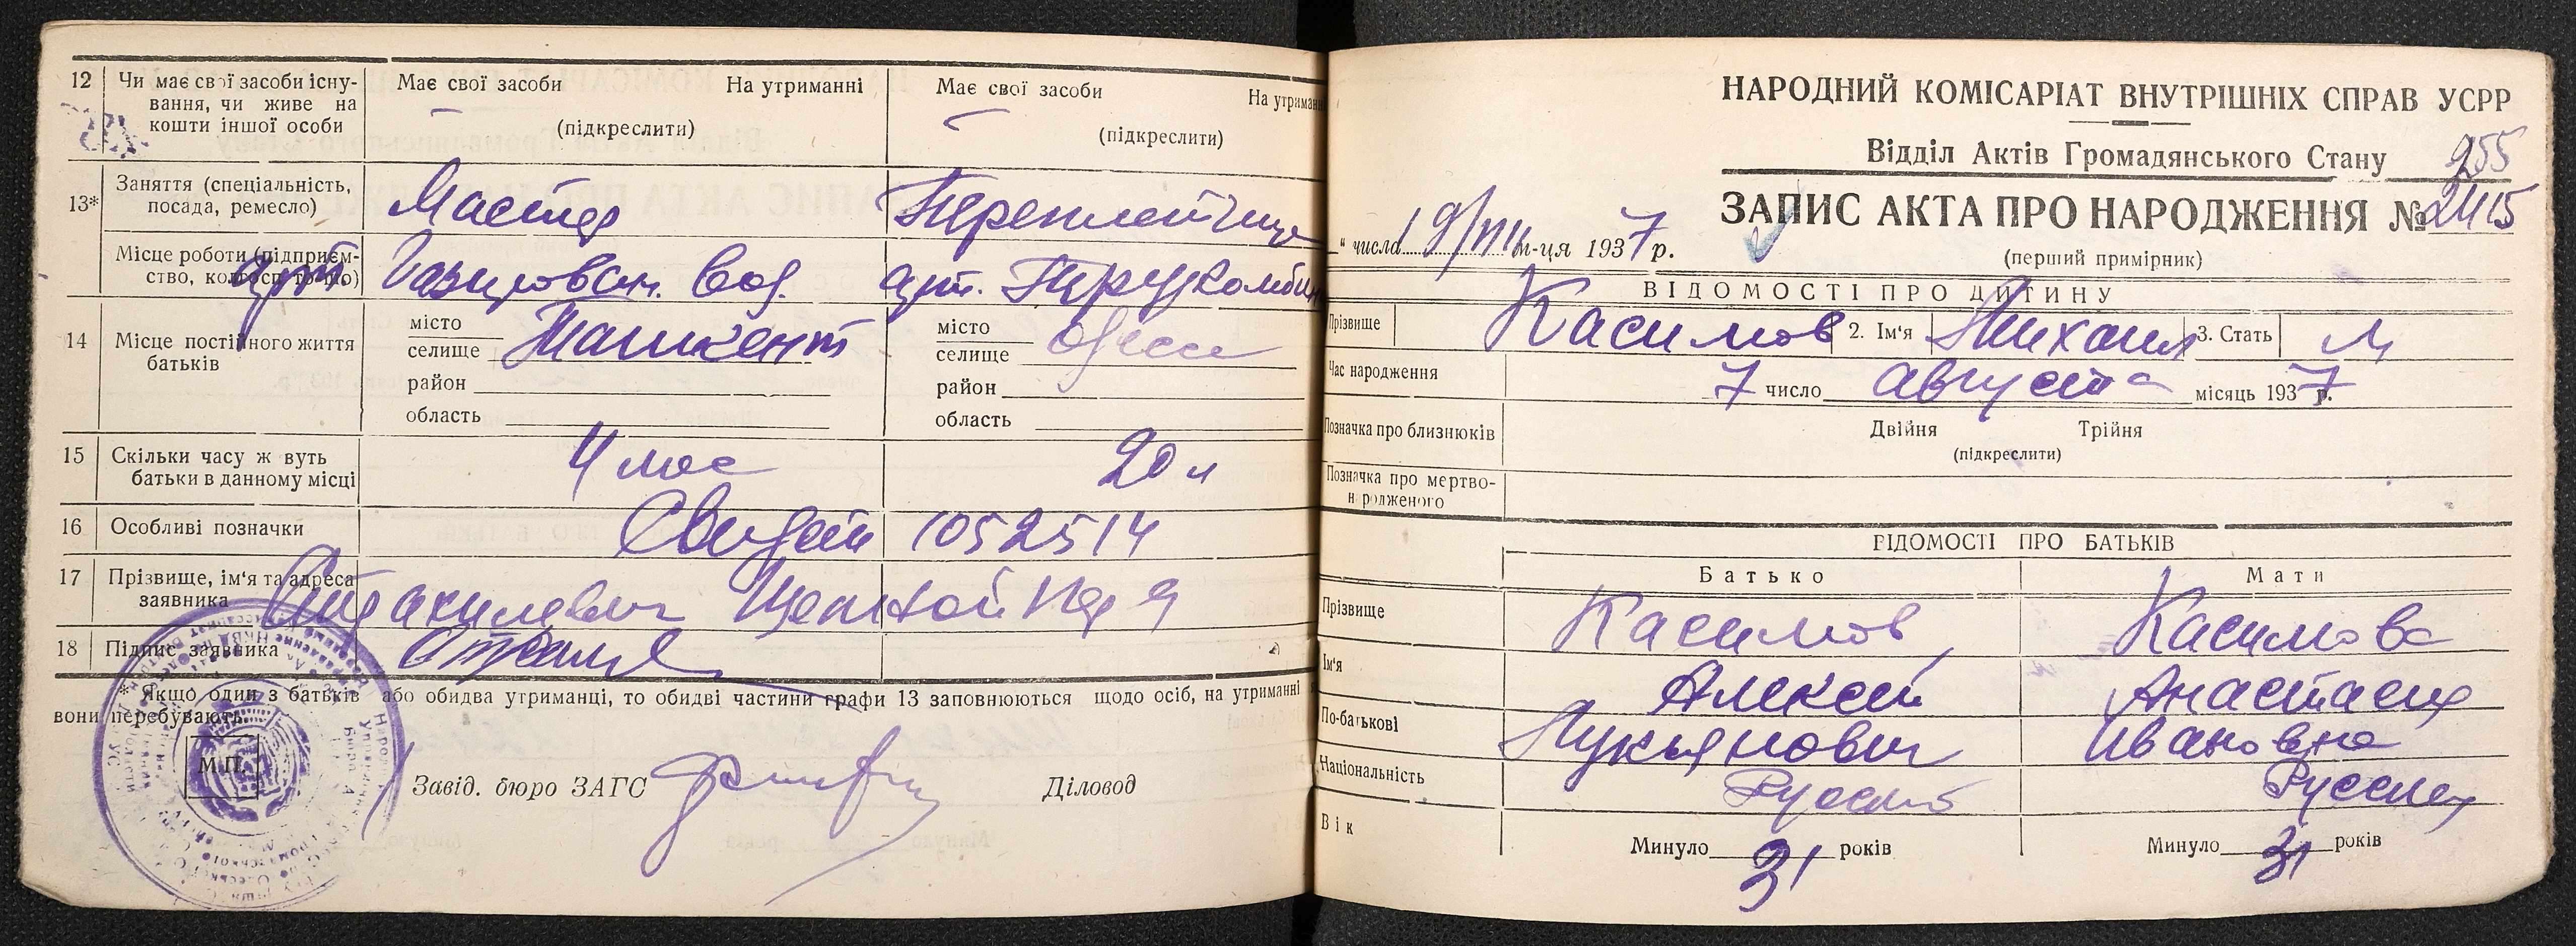 12 Чи має свої засоби існу-
вання, чи живе на
кошти іншої особи
Має свої засоби На утриманні
(підкреслити)
Має свої засоби На утриманні
(підкреслити)
13* Заняття (спеціальність,
посада, ремесло)
Мастер
Переплетчица
Місце роботи (підприєм-
ство, колгосп то-що)
арт.
арт.
14 Місце постійного життя
батьків
місто
селище Ташкент
район
область
місто
селище Одесса
район
область
15 Скільки часу ж вуть
батьки в данному місці
4 мес
20 л
16 Особливі позначки
1052514
17 Прізвище, ім'я та адреса
заявника
18 Підпис заявника
* Якщо один з батьків або обидва утриманці, то обидві частини графи 13 заповнюються щодо осіб, на утриманні
вони перебувають.
М.П.
Завід. бюро ЗАГС Діловод
НАРОДНИЙ КОМІСАРІАТ ВНУТРІШНІХ СПРАВ УСРР
Відділ Актів Громадянського Стану 255
ЗАПИС АКТА ПРО НАРОДЖЕННЯ № 2415
" числа 19/VIII м-ця 1937 р.
(перший примірник)
ВІДОМОСТІ ПРО ДИТИНУ
Прізвище Касимов 2. Ім'я Михаил 3. Стать М
Час народження 7 число августа місяць 1937 р.
Позначка про близнюків Двійня Трійня
(підкреслити)
Позначка про мертво-
н родженого
ВІДОМОСТІ ПРО БАТЬКІВ
Батько Мати
Прізвище Касимов Касимова
Ім'я Алексей Анастасия
По-батькові Лукьянович Ивановна
Національність Русский Русская
Вік Минуло 31 років Минуло 31 років